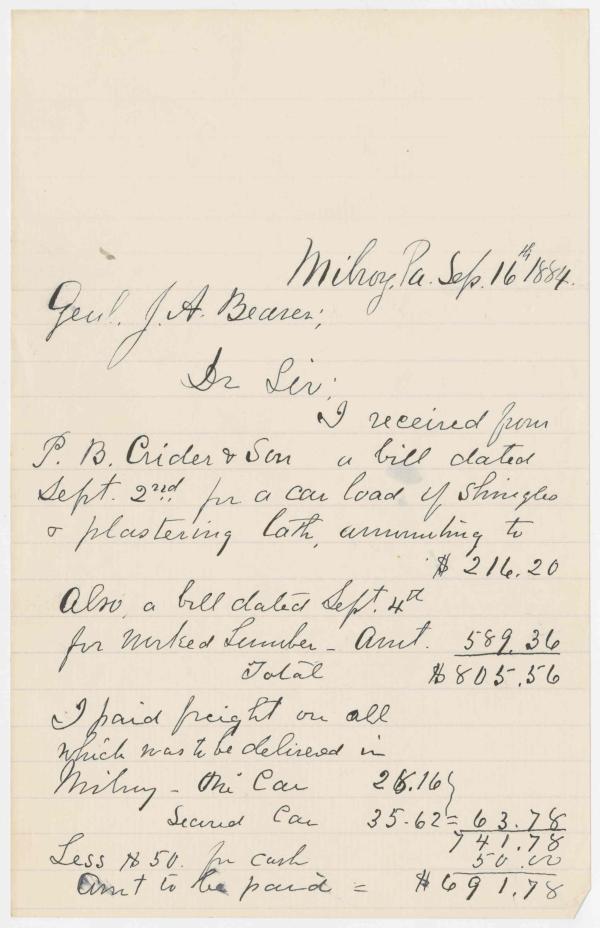 Milroy, Pa. Sep. 16th 1884.
Genl. J. A. Beaver;
Dr Sir;
I received from
P. B. Crider & Son a bill dated
Sept. 2nd for a car load of Shingles
& plastering lath, amounting to
$ 216.20
Also, a bill dated Sept. 4th
for worked Lumber - Amt. 589.36
Total $805.56
I paid freight on all
which was to be delivered in
Milroy - One Car 28.16
Second Car 35.62 = 63.78
741.78
Less $50. for cash 50.00
Amt to be paid = $691.78